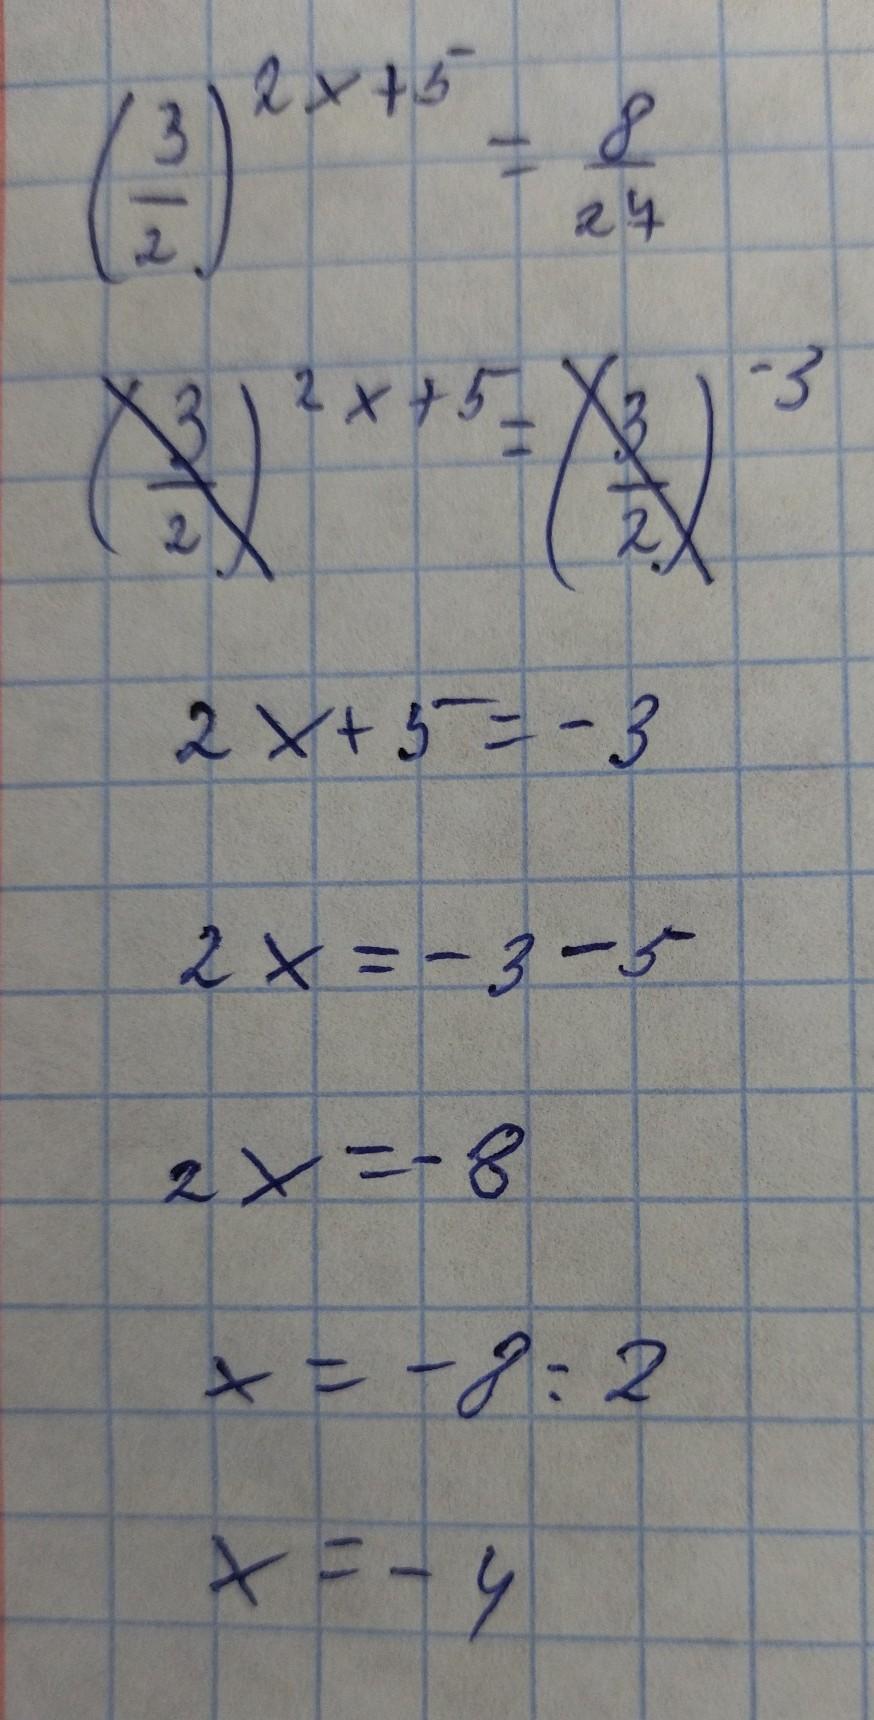 (3/2)^(2x+5) = 8/27
(3/2)^(2x+5) = (3/2)^(-3)
2x+5=-3
2x=-3-5
2x=-8
x=-8:2
x=-4